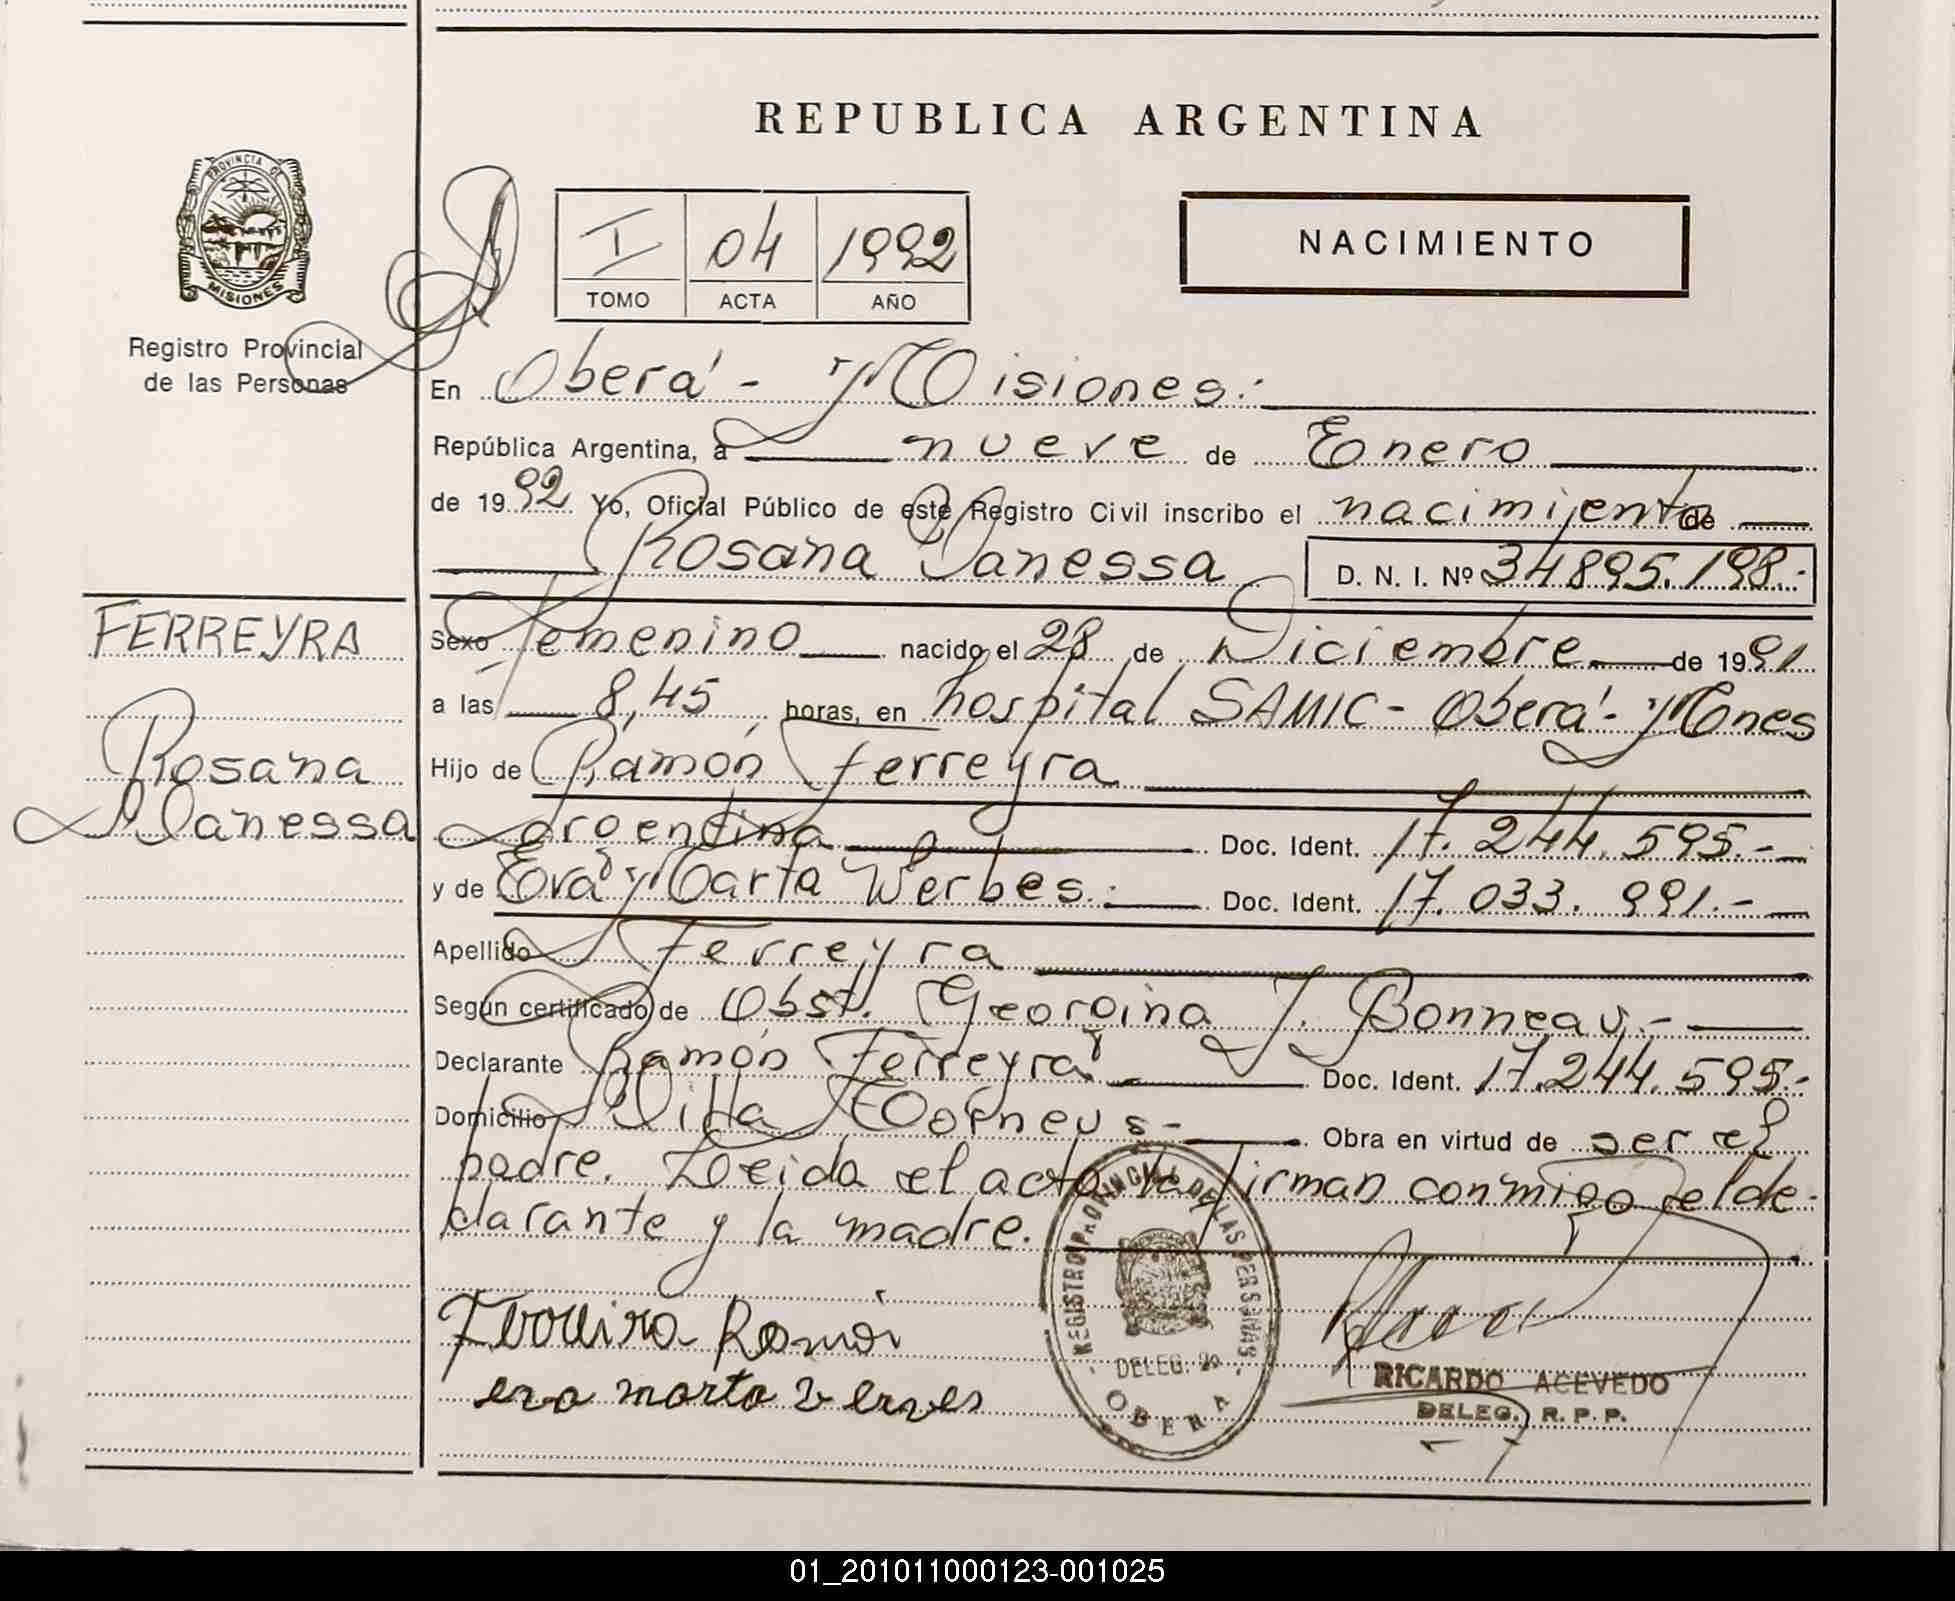 REPUBLICA ARGENTINA
PROVINCIA DE
MISIONES
Registro Provincial
de las Personas
I 04 1992
TOMO ACTA AÑO
NACIMIENTO
En Oberá - Misiones.-
República Argentina, a nueve de Enero
de 1992 Yo, Oficial Público de este Registro Civil inscribo el nacimiento de
Rosana Vanessa D. N. I. Nº 34895.198.-
FERREYRA
Rosana
Vanessa
Sexo Femenino nacido el 28 de Diciembre de 1991
a las 8,45 horas, en hospital SAMIC - Oberá - Mones
Hijo de Ramón Ferreyra
argentina Doc. Ident. 17.244.595.-
y de Eva Marta Werbes.- Doc. Ident. 17.033.991.-
Apellido Ferreyra
Según certificado de Obst. Georgina J. Bonneau.-
Declarante Ramón Ferreyra Doc. Ident. 17.244.595.-
Domicilio Villa Obra en virtud de ser el
padre. Leida el acta la firman conmigo el de-
clarante y la madre.
Ferreira Ramón
eva marta verves
REGISTRO PROVINCIAL DE LAS PERSONAS
DELEG. 2a
OBERA
RICARDO ACEVEDO
DELEG. R. P. P.
01_201011000123-001025